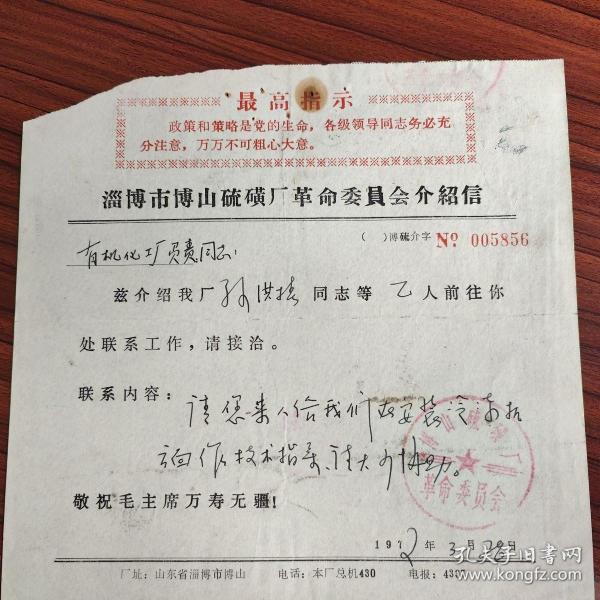 最高指示
政策和策略是党的生命，各级领导同志务必充
分注意，万万不可粗心大意。
淄博市博山硫磺厂革命委員会介紹信
( )博硫介字 № 005856
有机化工厂负责同志:
兹介绍我厂孙洪梼同志等乙人前往你
处联系工作，请接洽。
联系内容：请您来人给我们安装冷冻机
方面作技术指导,请大力协助。
敬祝毛主席万寿无疆！
革命委员会
1972年3月28日
厂址：山东省淄博市博山 电话：本厂总机430 电报：430
孔夫子旧书网
kongfz.com